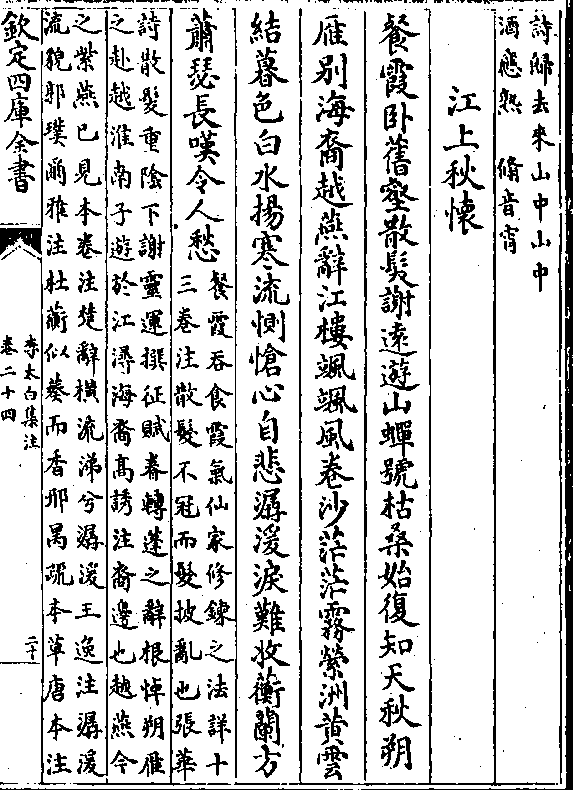 詩歸去來山中山中
酒應熟　脩音宵
江上秋懷
餐霞卧舊壑散髮謝遠遊山蟬號枯桑始復知天秋朔
雁别海裔越燕辭江樓颯颯風卷沙茫茫霧縈洲黄雲
結暮色白水揚寒流惻愴心自悲潺湲淚難收蘅蘭方
蕭瑟長嘆令人愁
餐霞吞食霞氣仙家修鍊之法詳十
三卷注散髮不冠而髮披亂也張華
詩散髮重陰下謝靈運撰征賦眷轉蓬之辭根悼朔雁
之赴越淮南子遊於江潯海裔高誘注裔邊也越燕今
之紫燕已見本卷注楚辭横流涕兮潺湲王逸注潺湲
流貌郭璞爾雅注杜蘅似葵而香邢昺疏本草唐本注
欽定四庫全書
李太白集注
卷二十四
二十